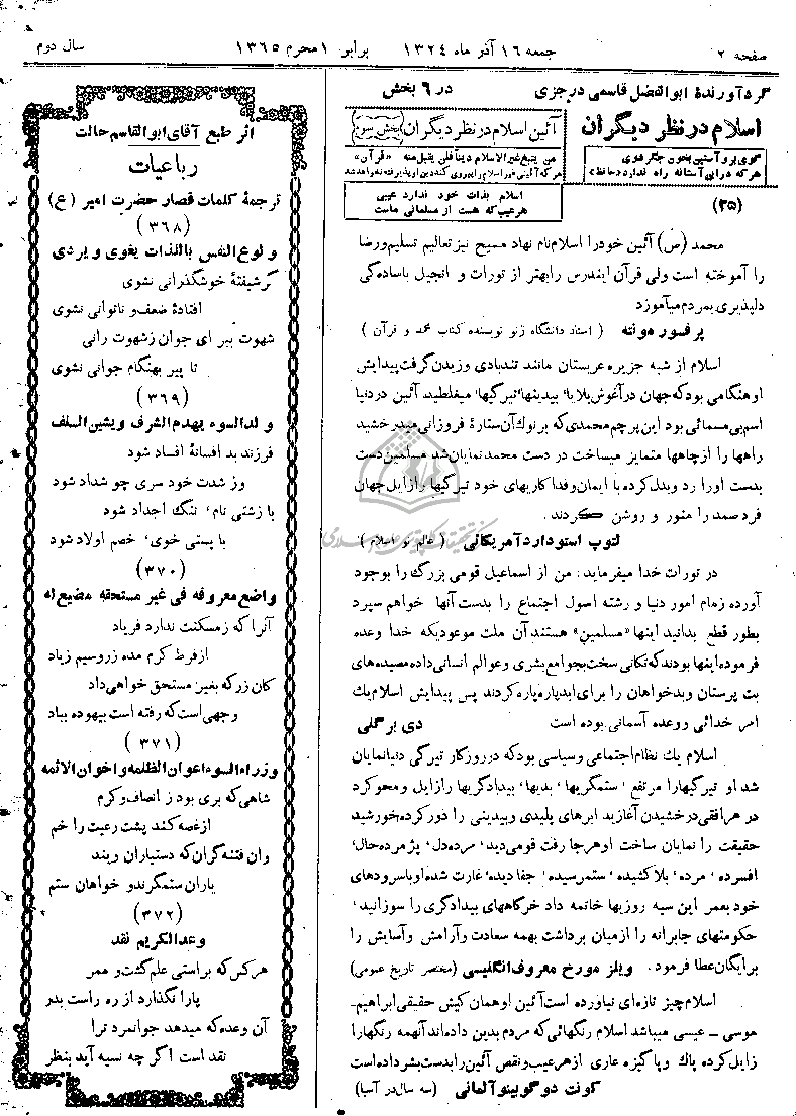 صفحه ۲
جمعه ۱۶ آذر ماه ۱۳۲۴
برابر ۱ محرم ۱۳۶۵
سال دوم
گردآورندهٔ ابوالفضل قاسمی درجزی
در ۶ بخش
اسلام در نظر دیگران
گوی برو آستین بخون جگر شوی
هرکه در این آستانه راه ندارد «حافظ»
آئین اسلام در نظر دیگران (بخش سوم)
من یتبع غیر الاسلام دیناً فلن یقبل منه «قرآن»
هر که آئینی غیر اسلام را پیروی کند دین او پذیرفته نخواهد شد
اسلام بذات خود ندارد عیبی
هر عیب که هست از مسلمانی ماست
(۳۵)
محمد (ص) آئین خود را اسلام نام نهاد مسیح نیز تعالیم تسلیم و رضا
را آموخته است ولی قرآن ایندرس را بهتر از تورات و انجیل با ساده‌گی
دلپذیری بمردم میآموزد
پرفسور مونته (استاد دانشگاه ژنو نویسنده کتاب محمد و قرآن)
اسلام از شبه جزیره عربستان مانند تندبادی وزیدن گرفت پیدایش
او هنگامی بود که جهان در آغوش بلایا، بیدینیها، تیرگیها، میغلطید آئین در دنیا
اسم بی‌مسمائی بود این پرچم محمدی که بر نوک آن ستارهٔ فروزانی میدرخشید
راهها را از چاهها متمایز میساخت در دست محمد نمایان شد مسلمین دست
بدست او را رد و بدل کرده با ایمان و فداکاریهای خود تیرگیها را زایل جهان
فرد صمد را منور و روشن کردند.
لتوپ استودارد آمریکائی (عالم نو اسلام)
در تورات خدا میفرماید: من از اسماعیل قومی بزرگ را بوجود
آورده زمام امور دنیا و رشته اصول اجتماع را بدست آنها خواهم سپرد
بطور قطع بدانید اینها «مسلمین» هستند آن ملت موعودیکه خدا وعده
فرموده اینها بودند که تکانی سخت بجوامع بشری و عوالم انسانی داده مصیده‌های
بت پرستان و بدخواهان را برای ابد پاره پاره کردند پس پیدایش اسلام یک
امر خدائی و وعده آسمانی بوده است
دی برگلی
اسلام یک نظام اجتماعی و سیاسی بود که در روزگار تیرگی دنیا نمایان
شد او تیرگیها را مرتفع، ستمگریها، بدیها، بیدادگریها را زایل و محو کرد
در هر افقی درخشیدن آغازید ابرهای پلیدی و بیدینی را دور کرده خورشید
حقیقت را نمایان ساخت او هر جا رفت قومی دید، مرده دل، پژمرده حال،
افسرده، مرده، بلا کشیده، ستمرسیده، جفا دیده، غارت شده او با سرودهای
خود بعمر این سیه روزیها خاتمه داد خرگاههای بیدادگری را سوزانید،
حکومتهای جابرانه را از میان برداشت بهمه سعادت و آرامش و آسایش را
برایگان عطا فرمود. ویلز مورخ معروف انگلیسی (مختصر تاریخ عمومی)
اسلام چیز تازه‌ای نیاورده است آئین او همان کیش حقیقی ابراهیم-
موسی - عیسی میباشد اسلام رنگهائی که مردم بدین داده‌اند آنهمه رنگها را
زایل کرده پاک و پاکیزه عاری از هر عیب و نقص آئین را بدست بشر داده است
کونت دو گوبینو آلمانی (سه سال در آسیا)
اثر طبع آقای ابوالقاسم حالت
رباعیات
ترجمهٔ کلمات قصار حضرت امیر (ع)
(۳۶۸)
ولوع النفس باللذات یغوی و یردی
گر شیفتهٔ خوشگذرانی نشوی
افتادهٔ ضعف و ناتوانی نشوی
شهوت پیر ای جوان ز شهوت رانی
تا پیر بهنگام جوانی نشوی
(۳۶۹)
ولد السوء یهدم الشرف و یشین السلف
فرزند بد افسانهٔ افساد شود
وز شدت خود سری چو شداد شود
با زشتی نام، ننگ اجداد شود
با پستی خوی، خصم اولاد شود
(۳۷۰)
واضع معروفه فی غیر مستحقه مضیع له
آنرا که ز مسکنت ندارد فریاد
از فرط کرم مده زر و سیم زیاد
کان زر که بغیر مستحق خواهی داد
وجهی است که رفته است بیهوده بباد
(۳۷۱)
وزراء السوء اعوان الظلمه و اخوان الاثمه
شاهی که بری بود ز انصاف و کرم
از غصه کند پشت رعیت را خم
وان فتنه گران که دستیاران ویند
یاران ستمگرند و خواهان ستم
(۳۷۲)
وعد الکریم نقد
هر کس که براستی علم گشت و ممر
پا را نگذارد از ره راست بدر
آن وعده که میدهد جوانمرد ترا
نقد است اگر چه نسیه آید بنظر